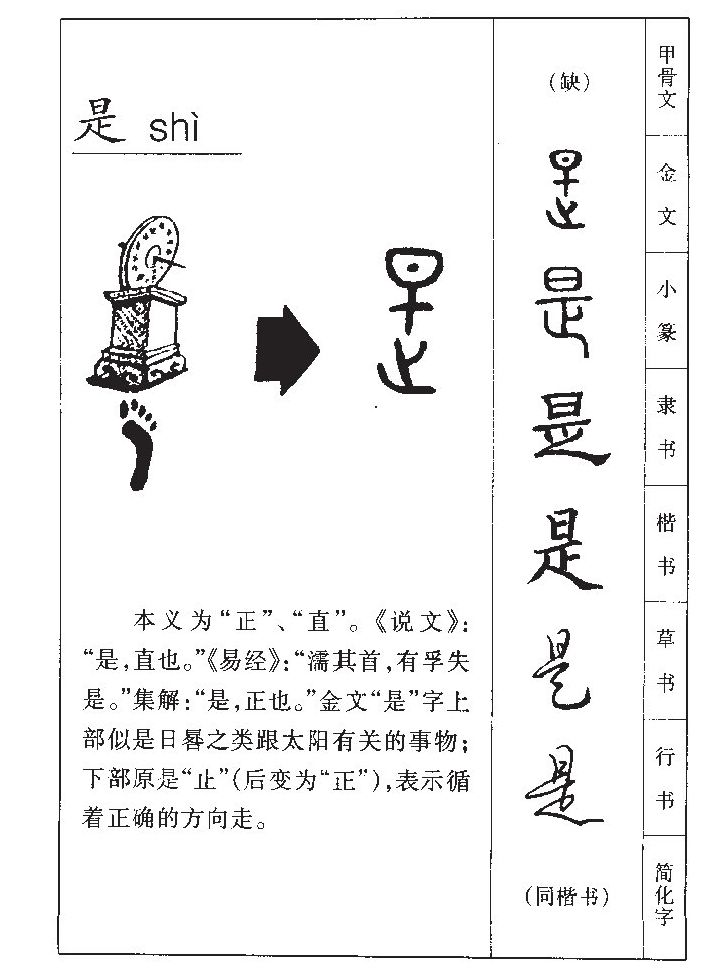 是 shì
本义为“正”、“直”。《说文》：
“是，直也。”《易经》：“濡其首，有孚失
是。”集解：“是，正也。”金文“是”字上
部似是日晷之类跟太阳有关的事物；
下部原是“止”（后变为“正”），表示循
着正确的方向走。
（缺） 甲骨文
是 金文
是 小篆
是 隶书
是 楷书
是 草书
是 行书
（同楷书） 简化字